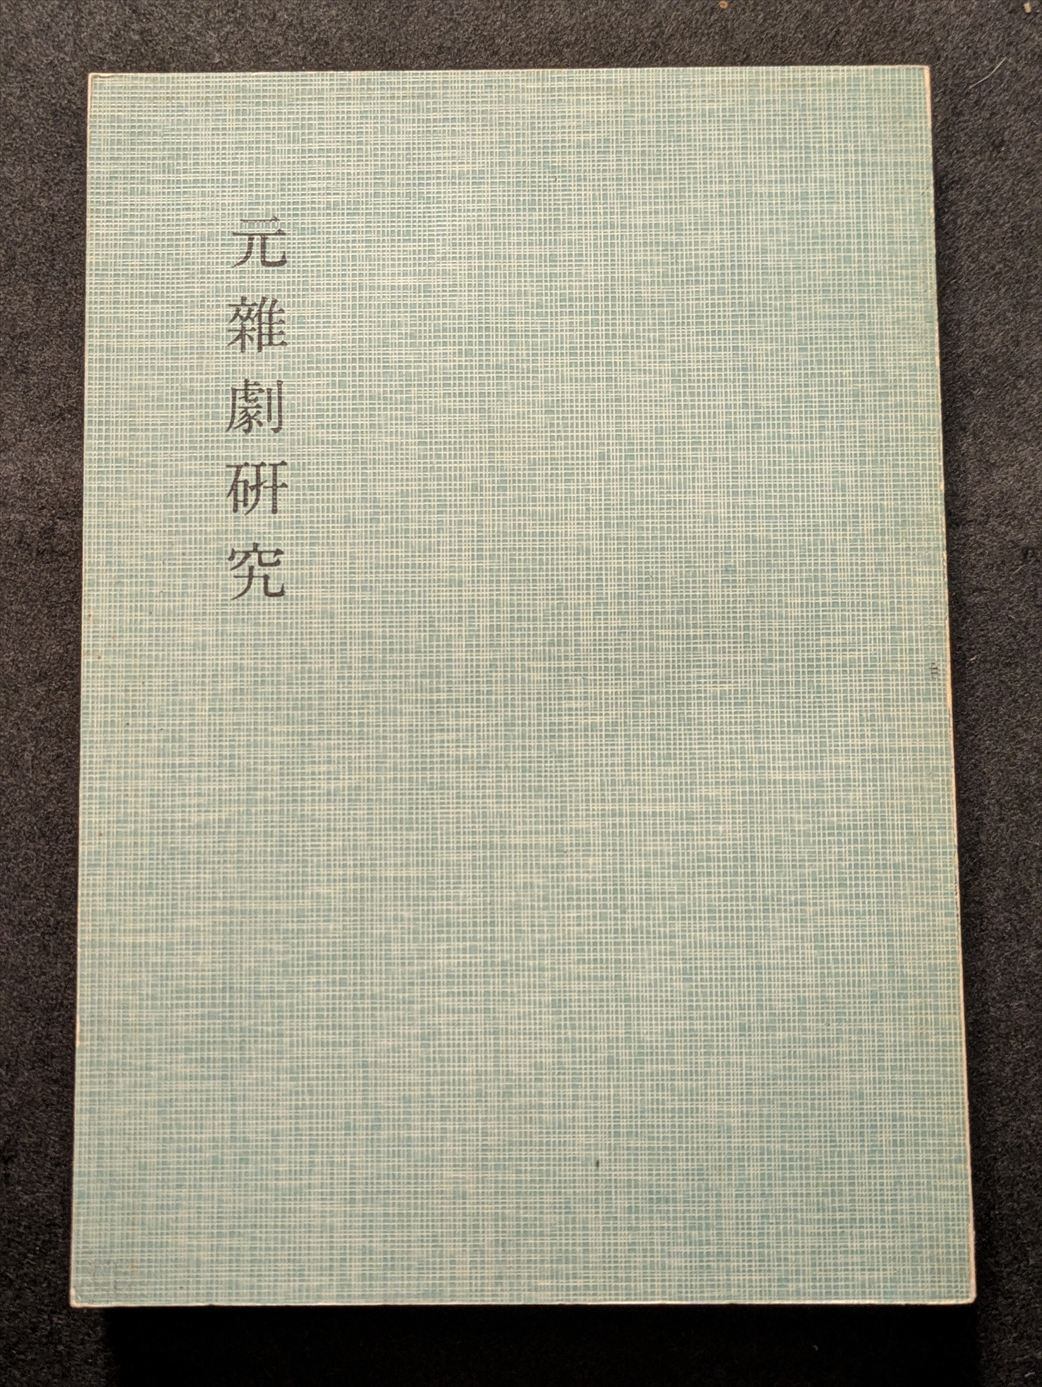 元雜劇硏究